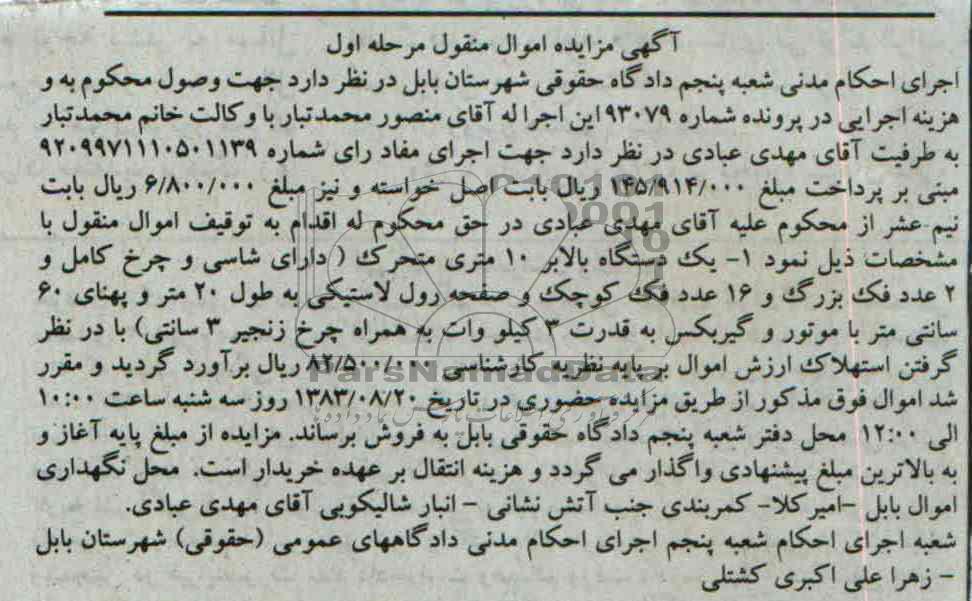 آگهی مزایده اموال منقول مرحله اول
اجرای احکام مدنی شعبه پنجم دادگاه حقوقی شهرستان بابل در نظر دارد جهت وصول محکوم به و
هزینه اجرایی در پرونده شماره ۹۳۰۷۹ این اجرا له آقای منصور محمدتبار با وکالت خانم محمدتبار
به طرفیت آقای مهدی عبادی در نظر دارد جهت اجرای مفاد رای شماره ۹۲۰۹۹۷۱۱۱۰۵۰۱۱۳۹
مبنی بر پرداخت مبلغ ۱۴۵/۹۱۴/۰۰۰ ریال بابت اصل خواسته و نیز مبلغ ۶/۸۰۰/۰۰۰ ریال بابت
نیم عشر از محکوم علیه آقای مهدی عبادی در حق محکوم له اقدام به توقیف اموال منقول با
مشخصات ذیل نمود ۱- یک دستگاه بالابر ۱۰ متری متحرک ( دارای شاسی و چرخ کامل و
۲ عدد فک بزرگ و ۱۶ عدد فک کوچک و صفحه رول لاستیکی به طول ۲۰ متر و پهنای ۶۰
سانتی متر با موتور و گیربکس به قدرت ۳ کیلو وات به همراه چرخ زنجیر ۳ سانتی) با در نظر
گرفتن استهلاک ارزش اموال بر پایه نظریه کارشناسی ۸۲/۵۰۰/۰۰۰ ریال برآورد گردید و مقرر
شد اموال فوق مذکور از طریق مزایده حضوری در تاریخ ۱۳۸۳/۰۸/۲۰ روز سه شنبه ساعت ۱۰:۰۰
الی ۱۲:۰۰ محل دفتر شعبه پنجم دادگاه حقوقی بابل به فروش برساند. مزایده از مبلغ پایه آغاز و
به بالاترین مبلغ پیشنهادی واگذار می گردد و هزینه انتقال بر عهده خریدار است. محل نگهداری
اموال بابل -امیرکلا- کمربندی جنب آتش نشانی - انبار شالیکوبی آقای مهدی عبادی.
شعبه اجرای احکام شعبه پنجم اجرای احکام مدنی دادگاههای عمومی (حقوقی) شهرستان بابل
- زهرا علی اکبری کشتلی
ParsNamadData